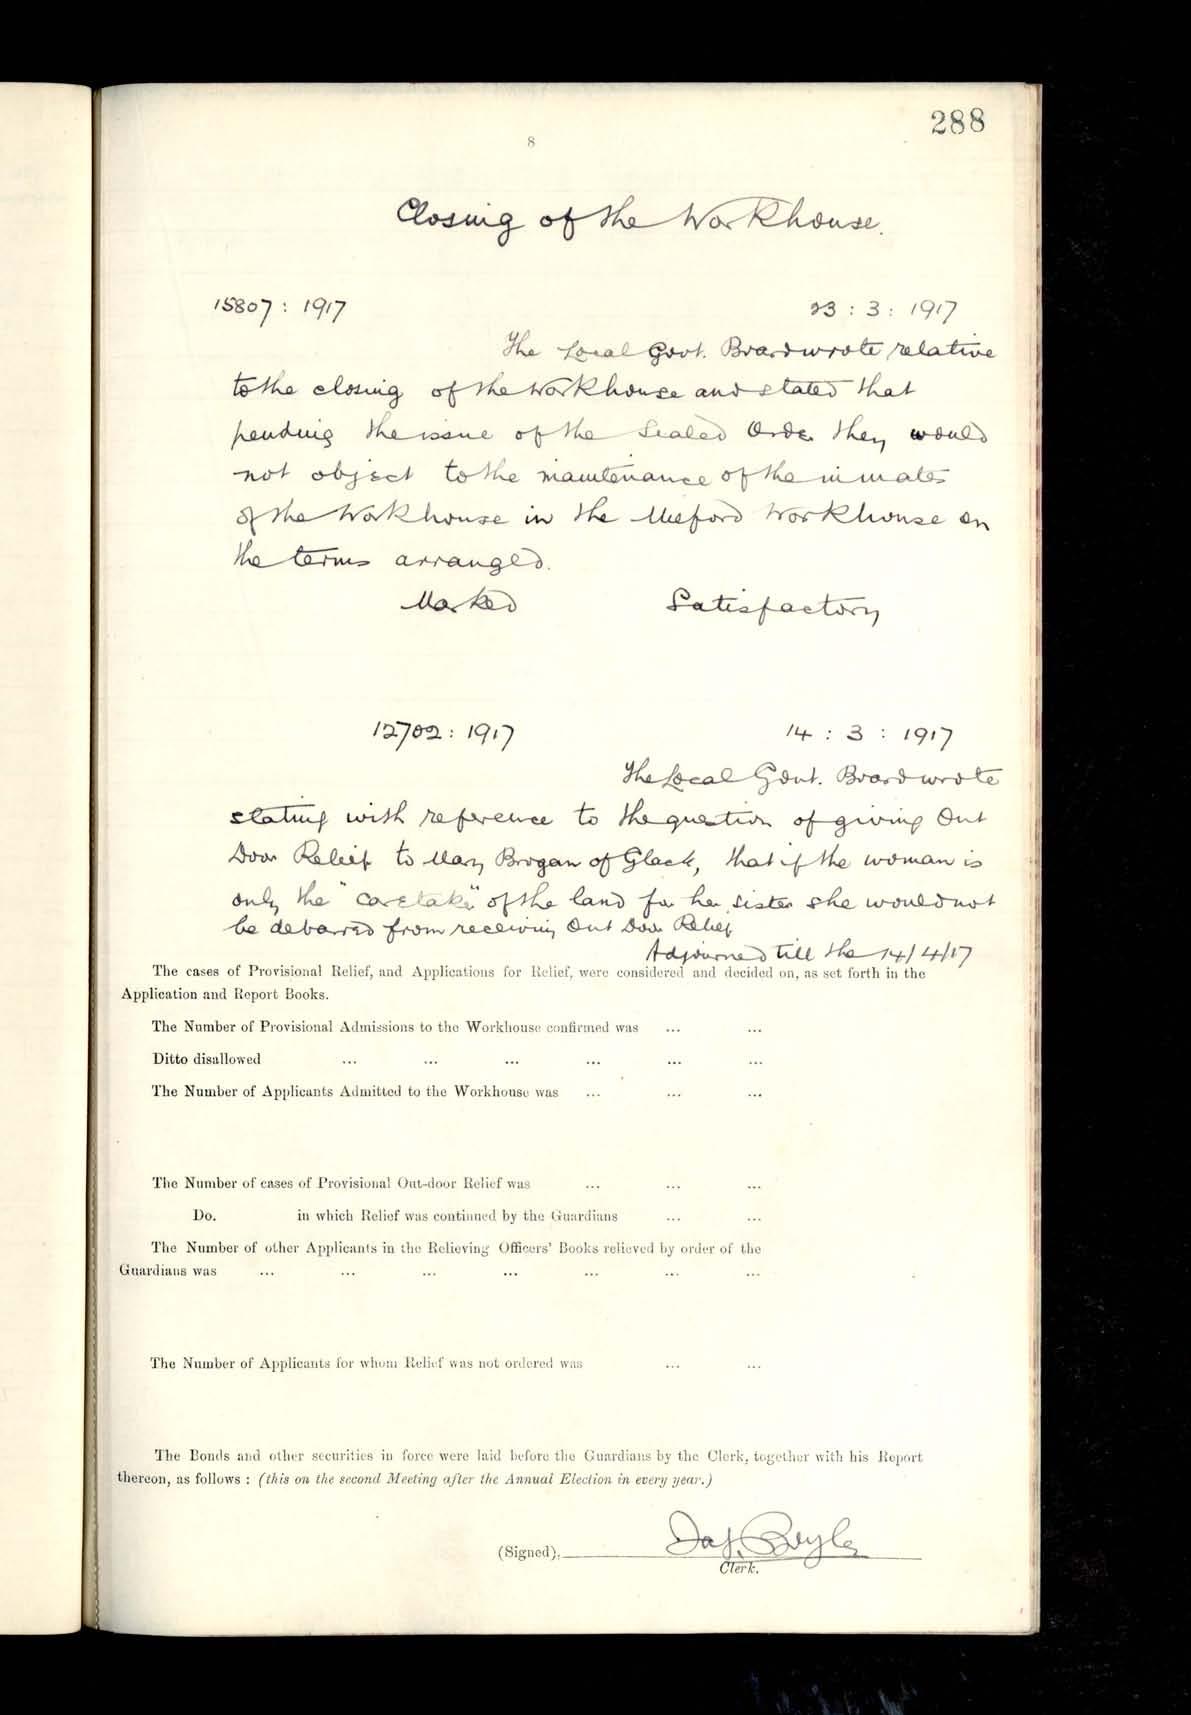 288
8
Closing of the Workhouse.
15807 : 1917 23 : 3 : 1917
The Local Govt. Board wrote relative
to the closing of the Workhouse and stated that
pending the issue of the Sealed Order they would
not object to the maintenance of the inmates
of the Workhouse in the Mieford Workhouse on
the terms arranged.
Marked Satisfactory
12702 : 1917 14 : 3 : 1917
The Local Govt. Board wrote
stating with reference to the question of giving Out
Door Relief to Mary Brogan of Glack, that if the woman is
only the "caretaker" of the land for her sister she would not
be debarred from receiving Out Door Relief
Adjourned till the 14/4/17
The cases of Provisional Relief, and Applications for Relief, were considered and decided on, as set forth in the
Application and Report Books.
The Number of Provisional Admissions to the Workhouse confirmed was ... ...
Ditto disallowed ... ... ... ... ... ...
The Number of Applicants Admitted to the Workhouse was ... ... ...
The Number of cases of Provisional Out-door Relief was ... ... ...
Do. in which Relief was continued by the Guardians ... ...
The Number of other Applicants in the Relieving Officers' Books relieved by order of the
Guardians was ... ... ... ... ... ... ...
The Number of Applicants for whom Relief was not ordered was ... ...
The Bonds and other securities in force were laid before the Guardians by the Clerk, together with his Report
thereon, as follows : (this on the second Meeting after the Annual Election in every year.)
(Signed), Jas. Boyle
Clerk.